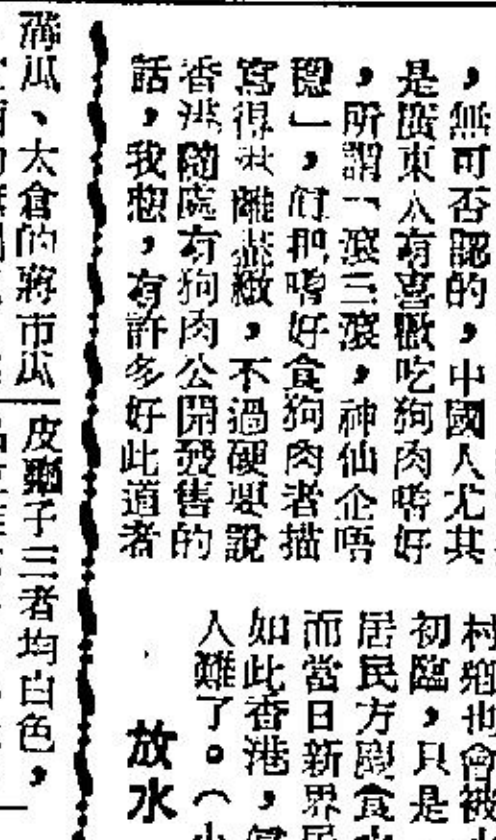 ，無可否認的，中國人尤其
是廣東人有喜歡吃狗肉嗜好
，所謂「滾三滾，神仙企唔
穩」，們把嗜好食狗肉者描
寫得淋離盡緻，不過硬要說
香港隨處有狗肉公開發售的
話，我想，有許多好此道者
村鄉也會被
初臨，只是
居民方圓食
而當日新界居
如此香港，
人難了。（
放水
瓜、太倉的蔣市瓜
皮瓤子三者均白色，